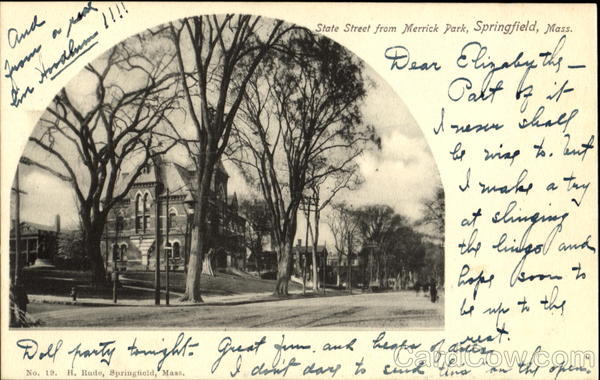 And
from a real
live Hoodlum !!!!
State Street from Merrick Park, Springfield, Mass.
Dear Elizabeth—
Part of it
I never shall
be wise to. but
I make a try
at slinging
the lingo and
hope soon to
be up to the
rest.
Doll party tonight. Great fun. and heaps of
I don't dare to send this on the open.
No. 19. H. Rude, Springfield, Mass.
CardCow.com